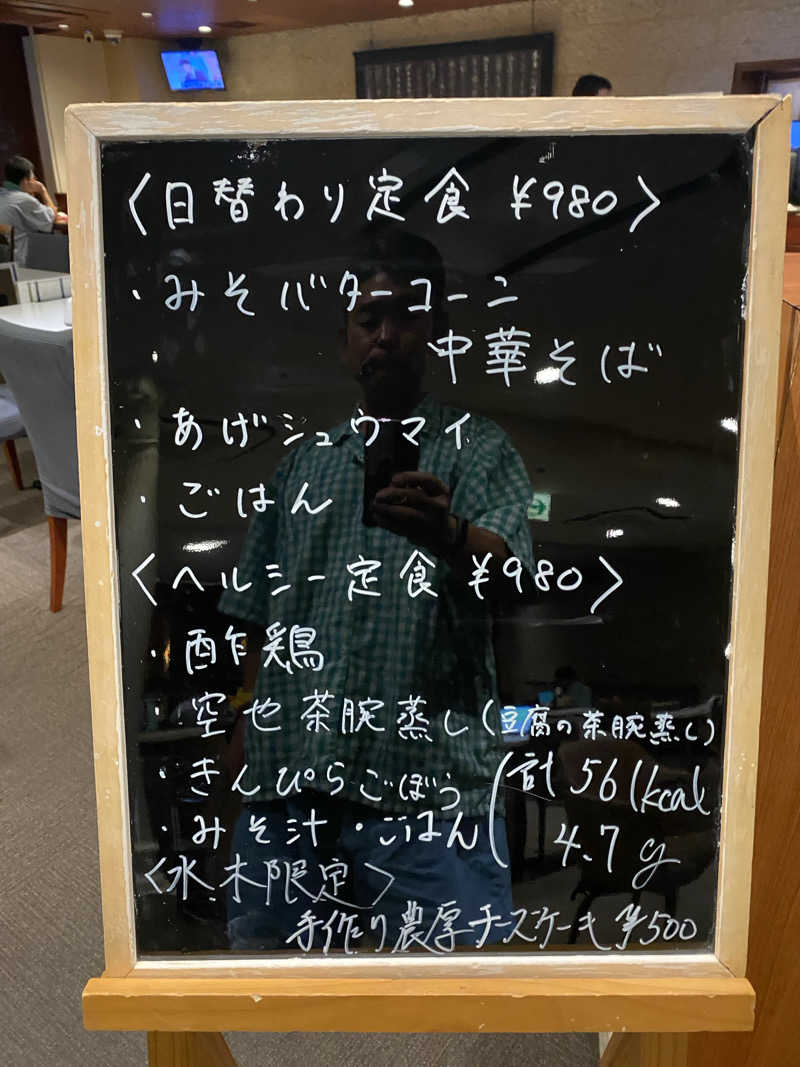 〈日替わり定食 ¥980〉
・みそバターコーン
中華そば
・あげシュウマイ
・ごはん
〈ヘルシー定食 ¥980〉
・酢鶏
・空也茶腕蒸し(豆腐の茶腕蒸し)
・きんぴらごぼう
・みそ汁・ごはん
(計561kcal
4.7g
〈水.木限定〉
手作り濃厚チーズケーキ ¥500